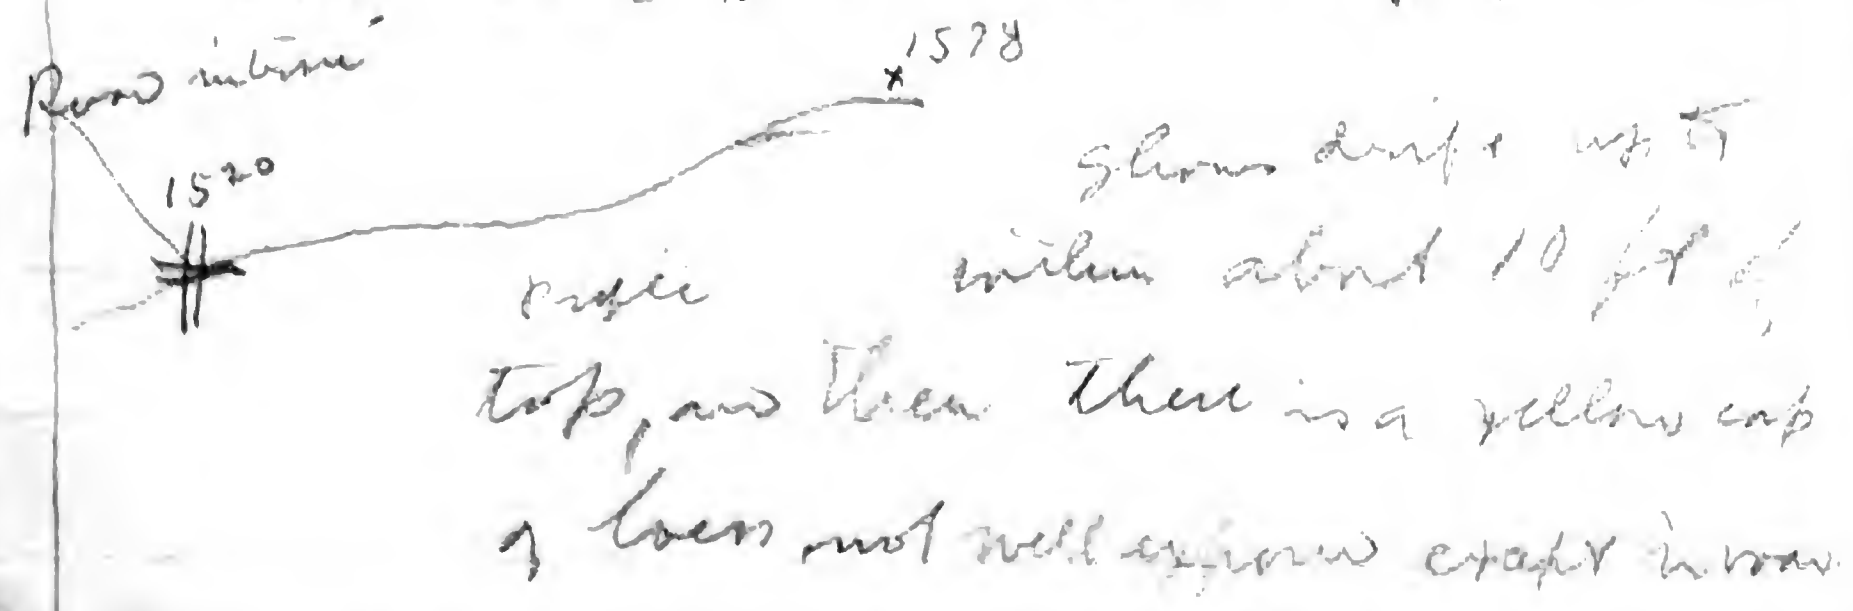 Road
1578
1520
shows drift up to
within about 10 ft of
top, and then there is a yellow cap
of loess not well exposed except in road